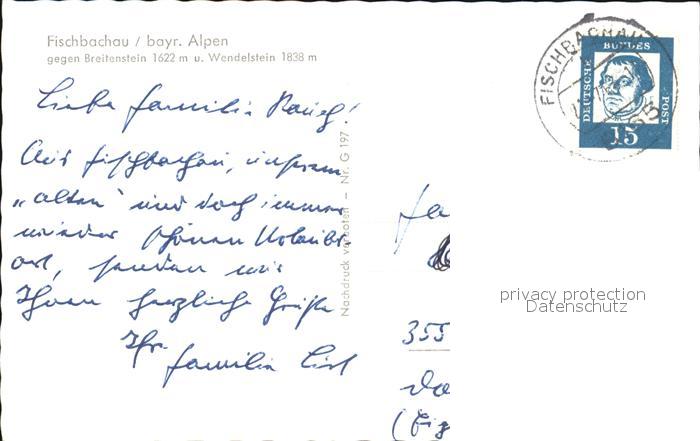 Fischbachau / bayr. Alpen
gegen Breitenstein 1622 m u. Wendelstein 1838 m
Liebe Familie
Aus Fischbachau, unserem
„alten“ und doch immer
wieder schönen Urlaubs-
ort, senden wir
Ihnen herzliche Grüße
Ihr.
Familie
Nachdruck verboten – Nr. G 197
FISCHBACHAU
DEUTSCHE
BUNDES
POST
15
Fa
355
privacy protection
Datenschutz